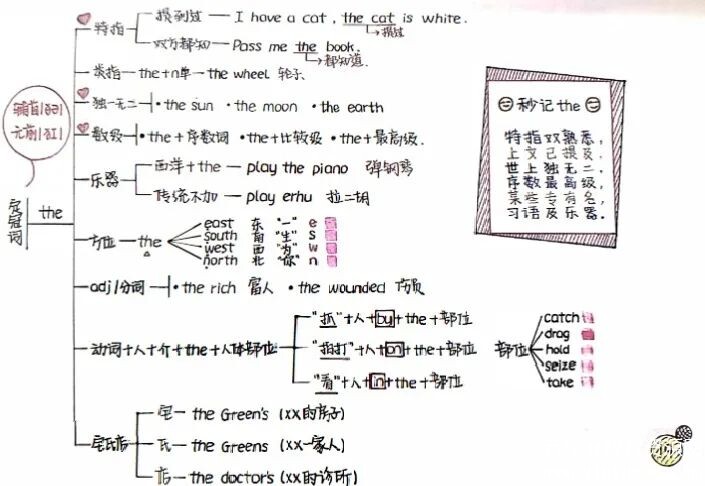 辅前/ðə/
元前/ðɪ/
定冠词
the
特指
提到过 — I have a cat, the cat is white.
提过
双方都知 — Pass me the book.
都知道
类指 — the+n单 — the wheel 轮子
独一无二 — ·the sun ·the moon ·the earth
数级 — ·the+序数词 ·the+比较级 ·the+最高级.
乐器
西洋+the — play the piano 弹钢琴
传统不加 — play erhu 拉二胡
方位 — the
east 东 "一" e
south 南 "生" s
west 西 "为" w
north 北 "你" n
adj/分词 — ·the rich 富人 ·the wounded 伤员
动词+人+介+the+人体部位
"抓"+人+by+the+部位
"拍打"+人+on+the+部位
"看"+人+in+the+部位
部位
catch
drag
hold
seize
take
宅氏店
宅 — the Green's (xx的房子)
氏 — the Greens (xx一家人)
店 — the doctor's (xx的诊所)
秒记 the
特指双熟悉，
上文已提及.
世上独无二，
序数最高级，
某些专有名，
习语及乐器.